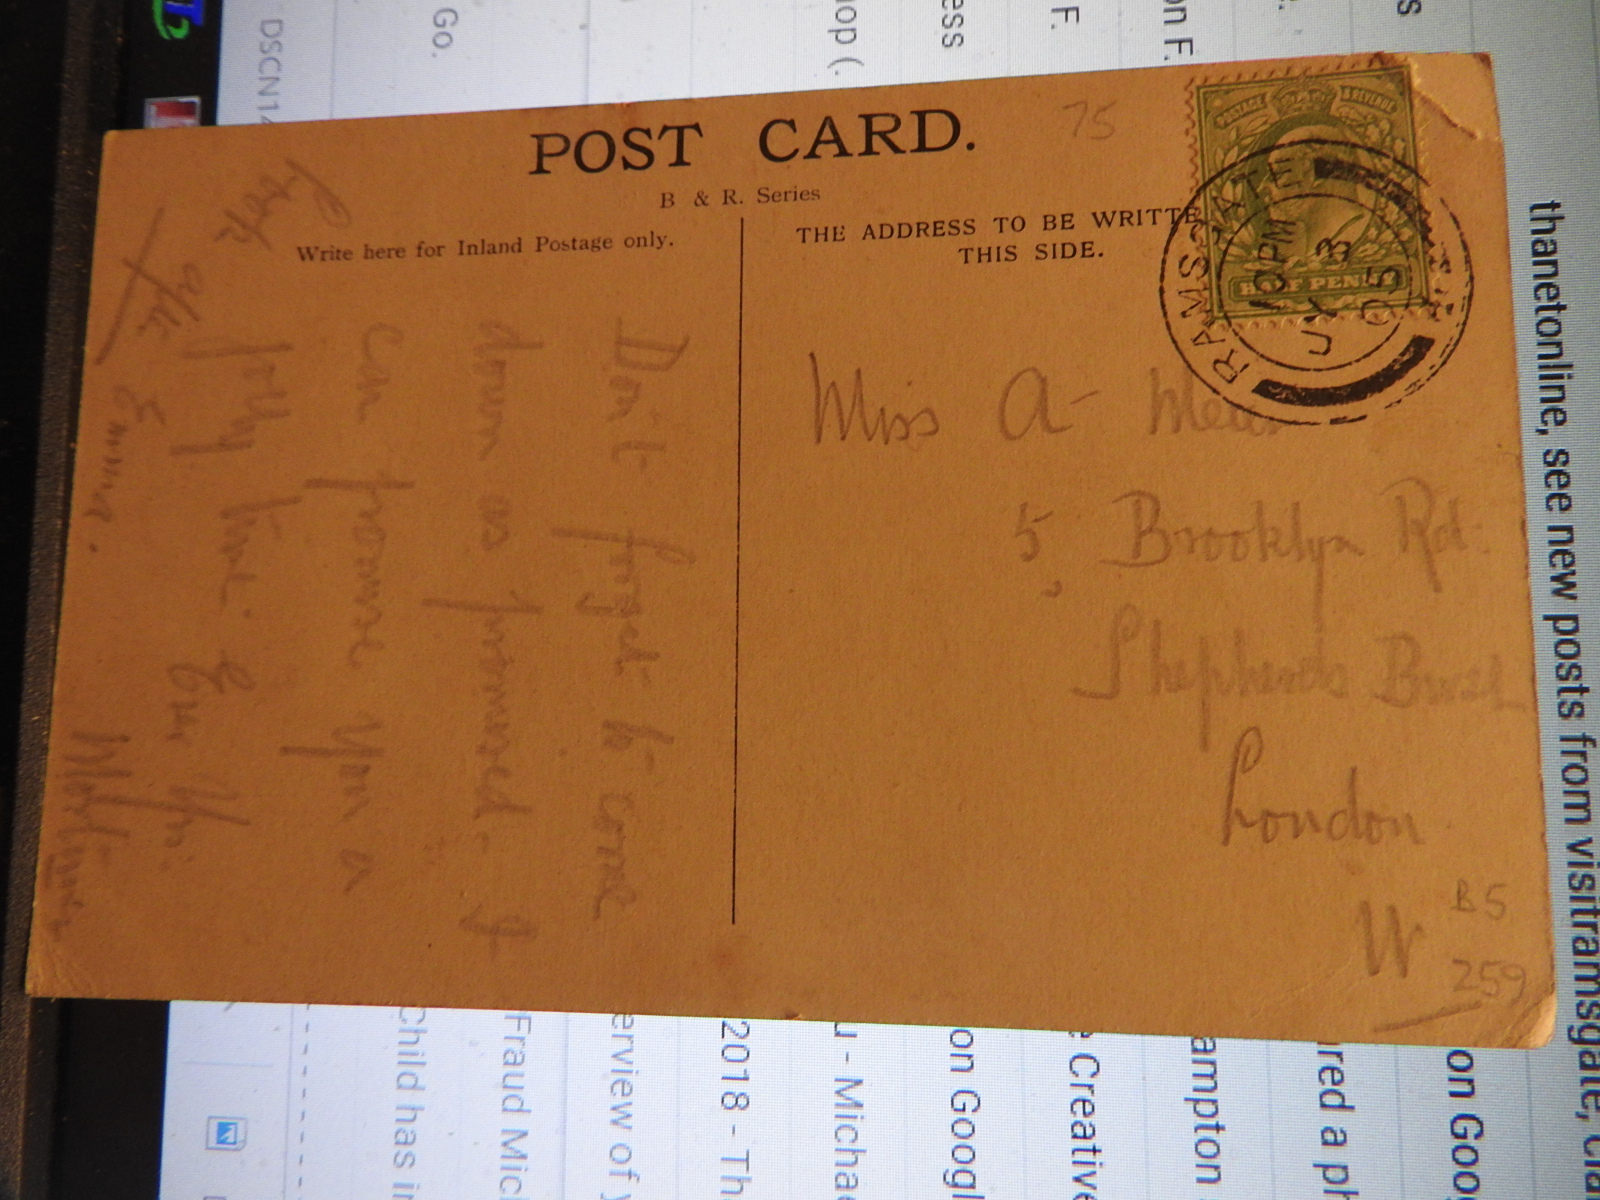 POST CARD.
B & R. Series
75
Write here for Inland Postage only.
THE ADDRESS TO BE WRITTE
THIS SIDE.
POSTAGE & REVENUE
HALF PENNY
RAMSGATE
10 PM
JY 3
05
Miss A-
5, Brooklyn Rd.
Shepherds Bush
London
W
B5
259
Don't forget to come
down as promised. I
can promise you a
jolly time.
Look
thanetonline, see new posts from visitramsgate, cha
DSCN14
Go.
op (.
ess
F.
on F.
Child has i
Fraud Mic
erview of y
2018 - Th
u - Michae
on Googl
e Creative
ampton
red a ph
on Goo